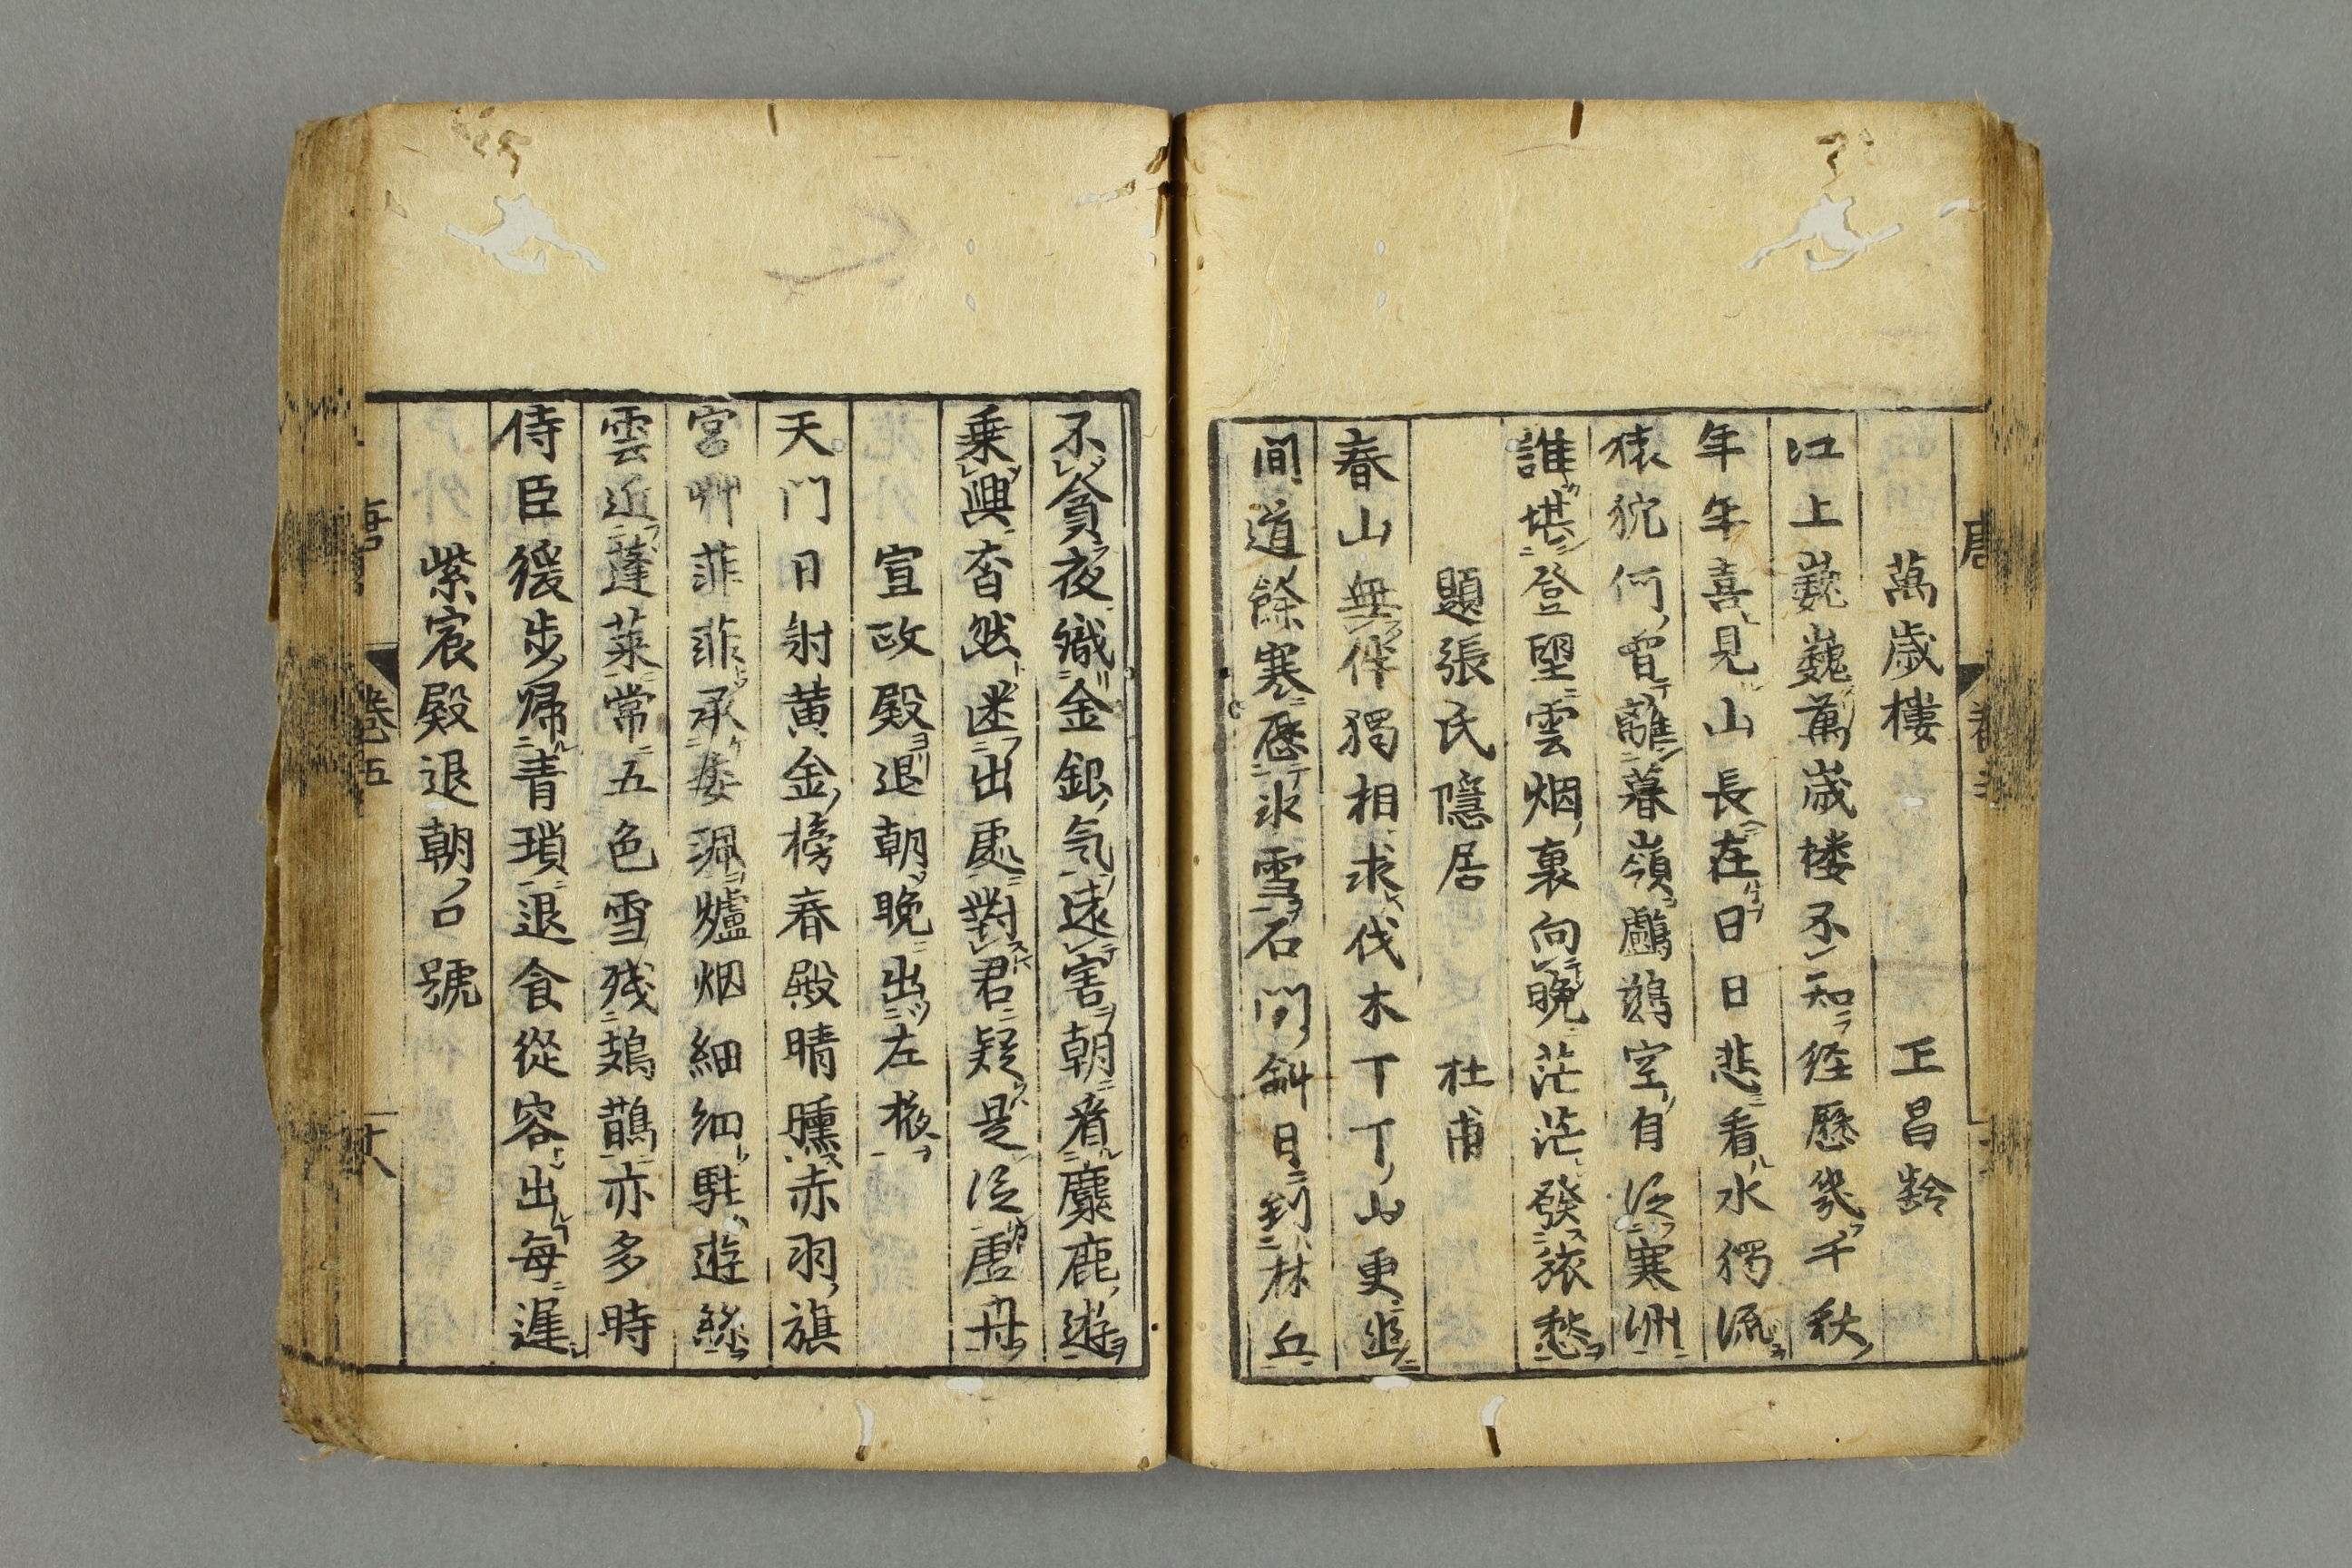 萬歳樓 王昌齡
江上巍巍萬歳楼不知経歴幾千秋
年年喜見山長在日日悲看水獨流
猿狖何曽離暮嶺鸕鷀空自泛寒洲
誰堪登望雲烟裏向晩茫茫發旅愁
題張氏隠居 杜甫
春山無伴獨相求伐木丁丁山更幽
間道餘寒歴氷雪石門斜日到林丘
不貪夜識金銀気遠害朝看麋鹿遊
乗興杳然迷出處對君疑是泛虚舟
宣政殿退朝晩出左掖
天門日射黄金榜春殿晴曛赤羽旗
宮艸菲菲承委珮爐烟細細駐遊絲
雲近蓬莱常五色雪残鳷鵲亦多時
侍臣緩歩帰青瑣退食從容出毎遲
紫宸殿退朝口號
巻五